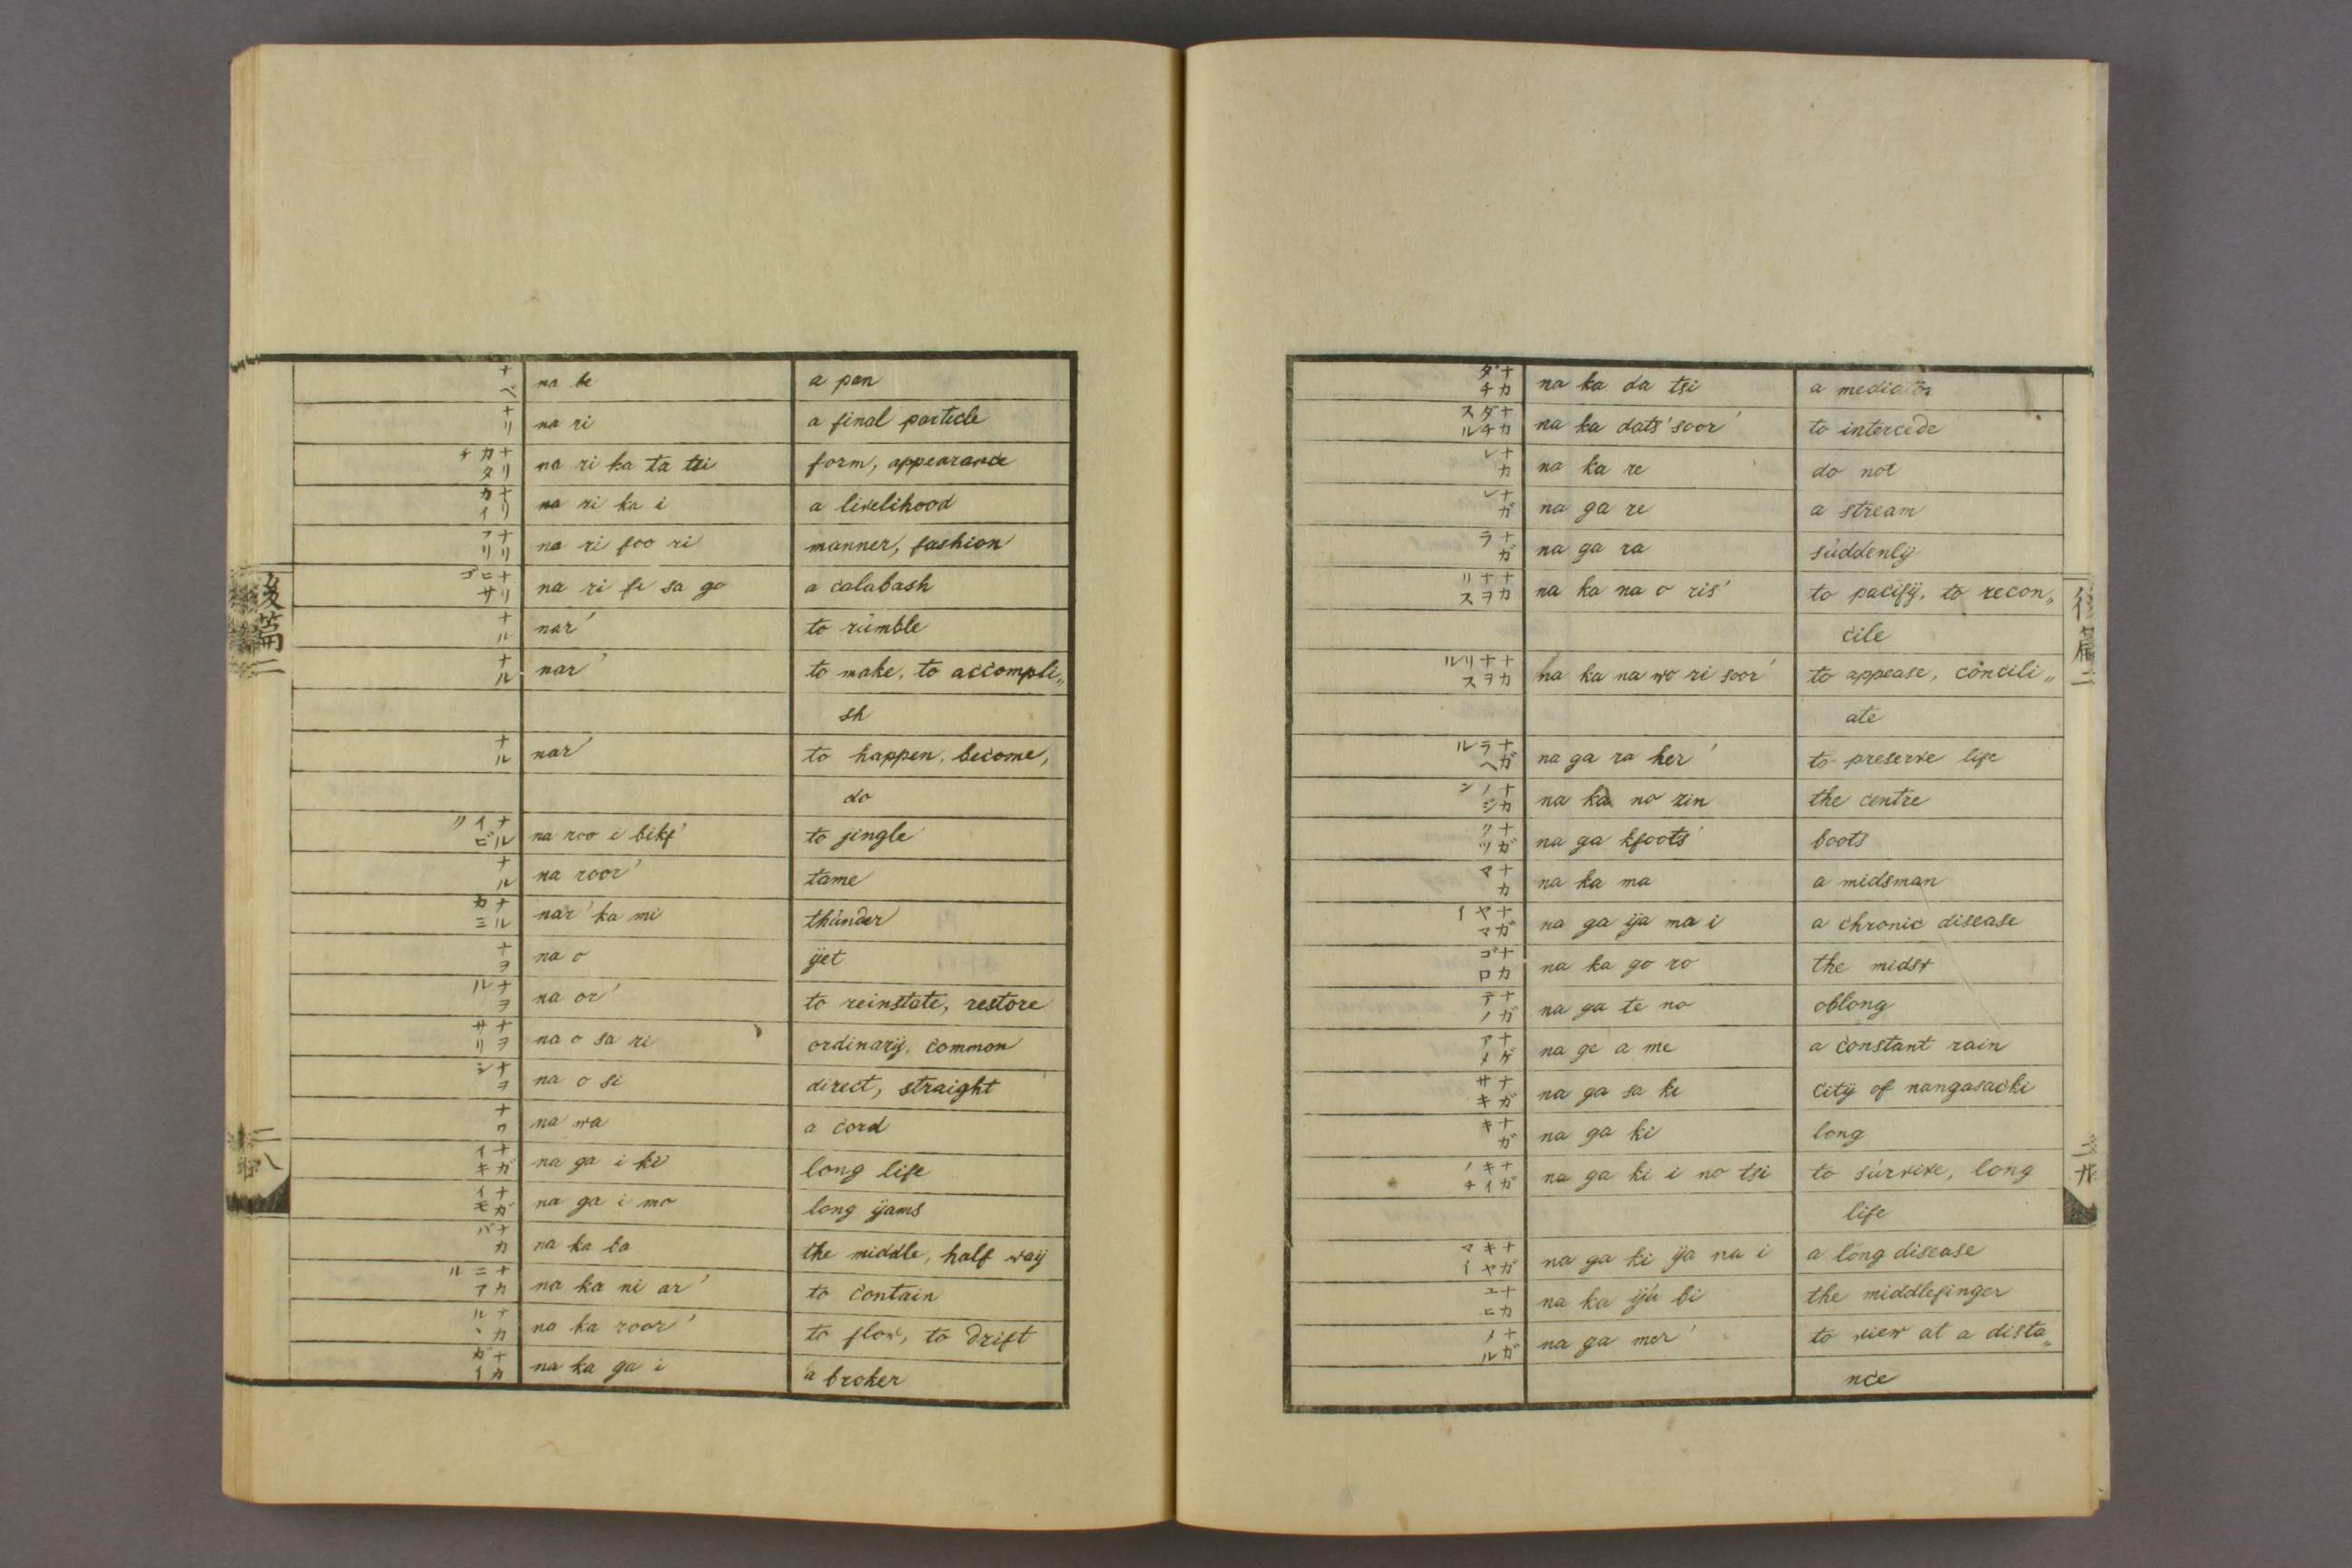 ナベ na be a pan
ナリ na ri a final particle
ナリカタチ na ri ka ta tsi form, appearance
ナリカイ na ri ka i a livelihood
ナリフリ na ri foo ri manner, fashion
ナリヒサゴ na ri fe sa go a calabash
ナル nar' to rumble
ナル nar' to make, to accompli„
sh
ナル nar' to happen, become,
do
na roo i bikf' to jingle
ナル na roor' tame
ナルカミ nar' ka mi thunder
ナヲ na o ÿet
ナヲル na or' to reinstate, restore
ナヲサリ na o sa ri ordinarÿ, common
ナヲシ na o si direct, straight
ナワ na wa a cord
ナガイキ na ga i ki long life
ナガイモ na ga i mo long ÿams
ナカバ na ka ba the middle, half waÿ
ナカニアル na ka ni ar' to contain
ナカヽル na ka roor' to flow, to drift
ナカガイ na ka ga i a broker
後篇
ナカダチ na ka da tsi a mediator
ナカダチスル na ka dats' soor' to intercede
ナカレ na ka re do not
ナガレ na ga re a stream
ナガラ na ga ra suddenlÿ
ナカナヲリス na ka na o ris' to pacifÿ, to recon„
cile
ナカナヲリスル na ka na wo ri soor' to appease, concili„
ate
ナガラヘル na ga ra her' to preserve life
ナカノジン na ka no zin the centre
ナガクツ na ga kfoots' boots
ナカマ na ka ma a midsman
ナガヤマイ na ga ÿa ma i a chronic disease
ナカゴロ na ka go ro the midst
ナガテノ na ga te no oblong
ナゲアメ na ge a me a constant rain
ナガサキ na ga sa ki citÿ of nangasacki
ナガキ na ga ki long
ナガキイノチ na ga ki i no tsi to survive, long
life
ナガキヤマイ na ga ki ÿa na i a long disease
ナカユヒ na ka ÿu bi the middlefinger
ナガメル na ga mer' to view at a dista„
nce